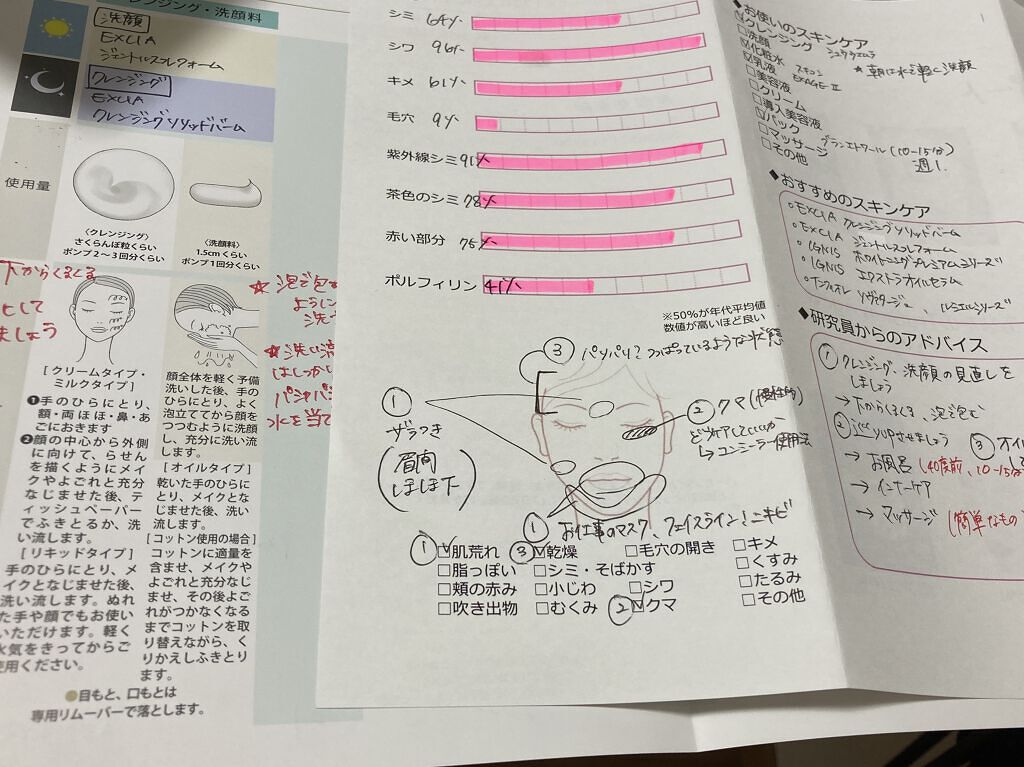 レンジング・洗顔料
洗顔
EXCIA
ジェントルスフレフォーム
クレンジング
EXCIA
クレンジングソリッドバーム
使用量
〈クレンジング〉
さくらんぼ粒くらい
ポンプ2〜3回分くらい
〈洗顔料〉
1.5cmくらい
ポンプ1回分くらい
下からくるくる
として
ましょう
★泡で包む
ように
洗う
★洗い流
はしっかい
パシャパシ
水を当て
[クリームタイプ・
ミルクタイプ]
❶手のひらにとり、
額・両ほほ・鼻・あ
ごにおきます
❷顔の中心から外側
に向けて、らせん
を描くようにメイ
クやよごれと充分
なじませた後、テ
ィッシュペーパー
でふきとるか、洗
い流します。
[リキッドタイプ]
手のひらにとり、メ
イクとなじませた後、
洗い流します。ぬれ
た手や顔でもお使い
いただけます。軽く
水気をきってからご
使用ください。
顔全体を軽く予備
洗いした後、手の
ひらにとり、よく
泡立ててから顔を
つつむように洗顔
し、充分に洗い流
します。
[オイルタイプ]
乾いた手のひらに
とり、メイクとな
じませた後、洗い
流します。
[コットン使用の場合]
コットンに適量を
含ませ、メイクや
よごれと充分なじ
ませ、その後よご
れがつかなくなる
までコットンを取
り替えながら、く
りかえしふきとり
ます。
●目もと、口もとは
専用リムーバーで落とします。
シミ 64%
シワ 96%
キメ 61%
毛穴 9%
紫外線シミ 91%
茶色のシミ 78%
赤い部分 75%
ポルフィリン 41%
※50%が年代平均値
数値が高いほど良い
③ パリパリ?つっぱっているような状態
①
ザラつき
(眉間
ほほ下)
② クマ(慢性的)
どうケアしていいか
↳コンシーラー使用法
① お仕事のマスク、フェイスライン!ニキビ
①☑肌荒れ ③☑乾燥 □毛穴の開き □キメ
□脂っぽい □シミ・そばかす □くすみ
□頬の赤み □小じわ □シワ □たるみ
□吹き出物 □むくみ ②☑クマ □その他
◆お使いのスキンケア
☑クレンジング シュウウエムラ
□洗顔 ★朝は水で軽く洗顔
☑化粧水 アルビオン
☑乳液 EXAGE II
□美容液
□クリーム
□導入美容液
☑パック
□マッサージ グランエトワール(10-15分)
□その他 週1.
◆おすすめのスキンケア
◦EXCIA クレンジングソリッドバーム
◦EXCIA ジェントルスフレフォーム
◦IGNIS ホワイトニングプレミアムシリーズ
◦IGNIS エクストラオイルセラム
◦アンフィネス
◆研究員からのアドバイス
① クレンジング、洗顔の見直しを
しましょう
→下からくるくる、泡で包む
② 巡りupさせましょう ③ オイ
→お風呂(40度前、10-15分
→インナーケア
→マッサージ(簡単なもの